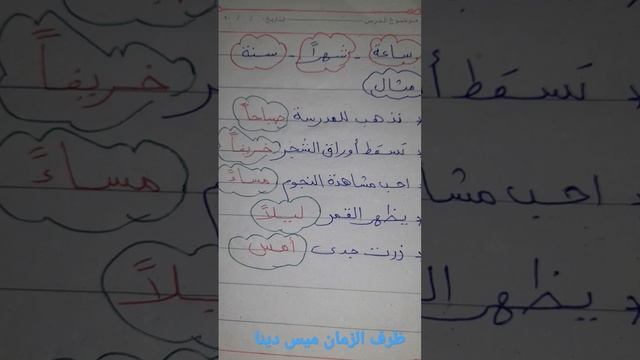 موضوع الدرس التاريخ: / / ٢٠
ساعة - شهراً - سنة
مثال
نذهب للمدرسة صباحاً
تسقط أوراق الشجر خريفاً
احب مشاهدة النجوم مساءً
يظهر القمر ليلاً
زرت جدى أمس
ظرف الزمان ميس دينا